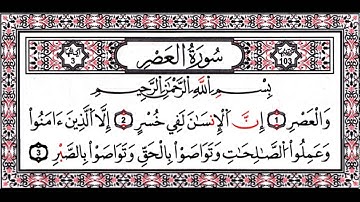 سُورَةُ العَصْرِ
103
3
بِسْمِ اللَّهِ الرَّحْمَٰنِ الرَّحِيمِ
وَالْعَصْرِ ① إِنَّ الْإِنسَانَ لَفِي خُسْرٍ ② إِلَّا الَّذِينَ ءَامَنُوا
وَعَمِلُوا الصَّالِحَاتِ وَتَوَاصَوْا بِالْحَقِّ وَتَوَاصَوْا بِالصَّبْرِ ③